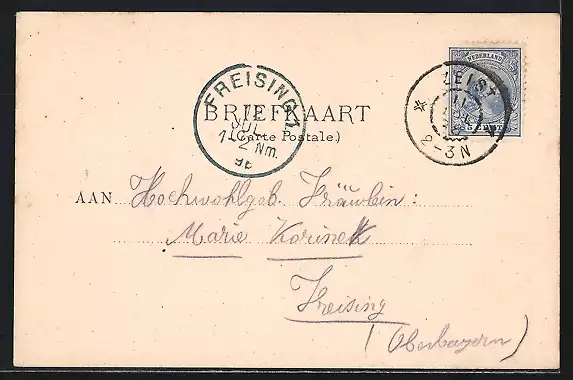 NEDERLAND
5 CENT
ZEIST
11
JUL
2-3N
FREISING I
JUL
1-2 Nm.
96
BRIEFKAART
(Carte Postale.)
AAN Hochwohlgeb. Fräulein:
Marie Korinek
Freising
(Oberbayern)